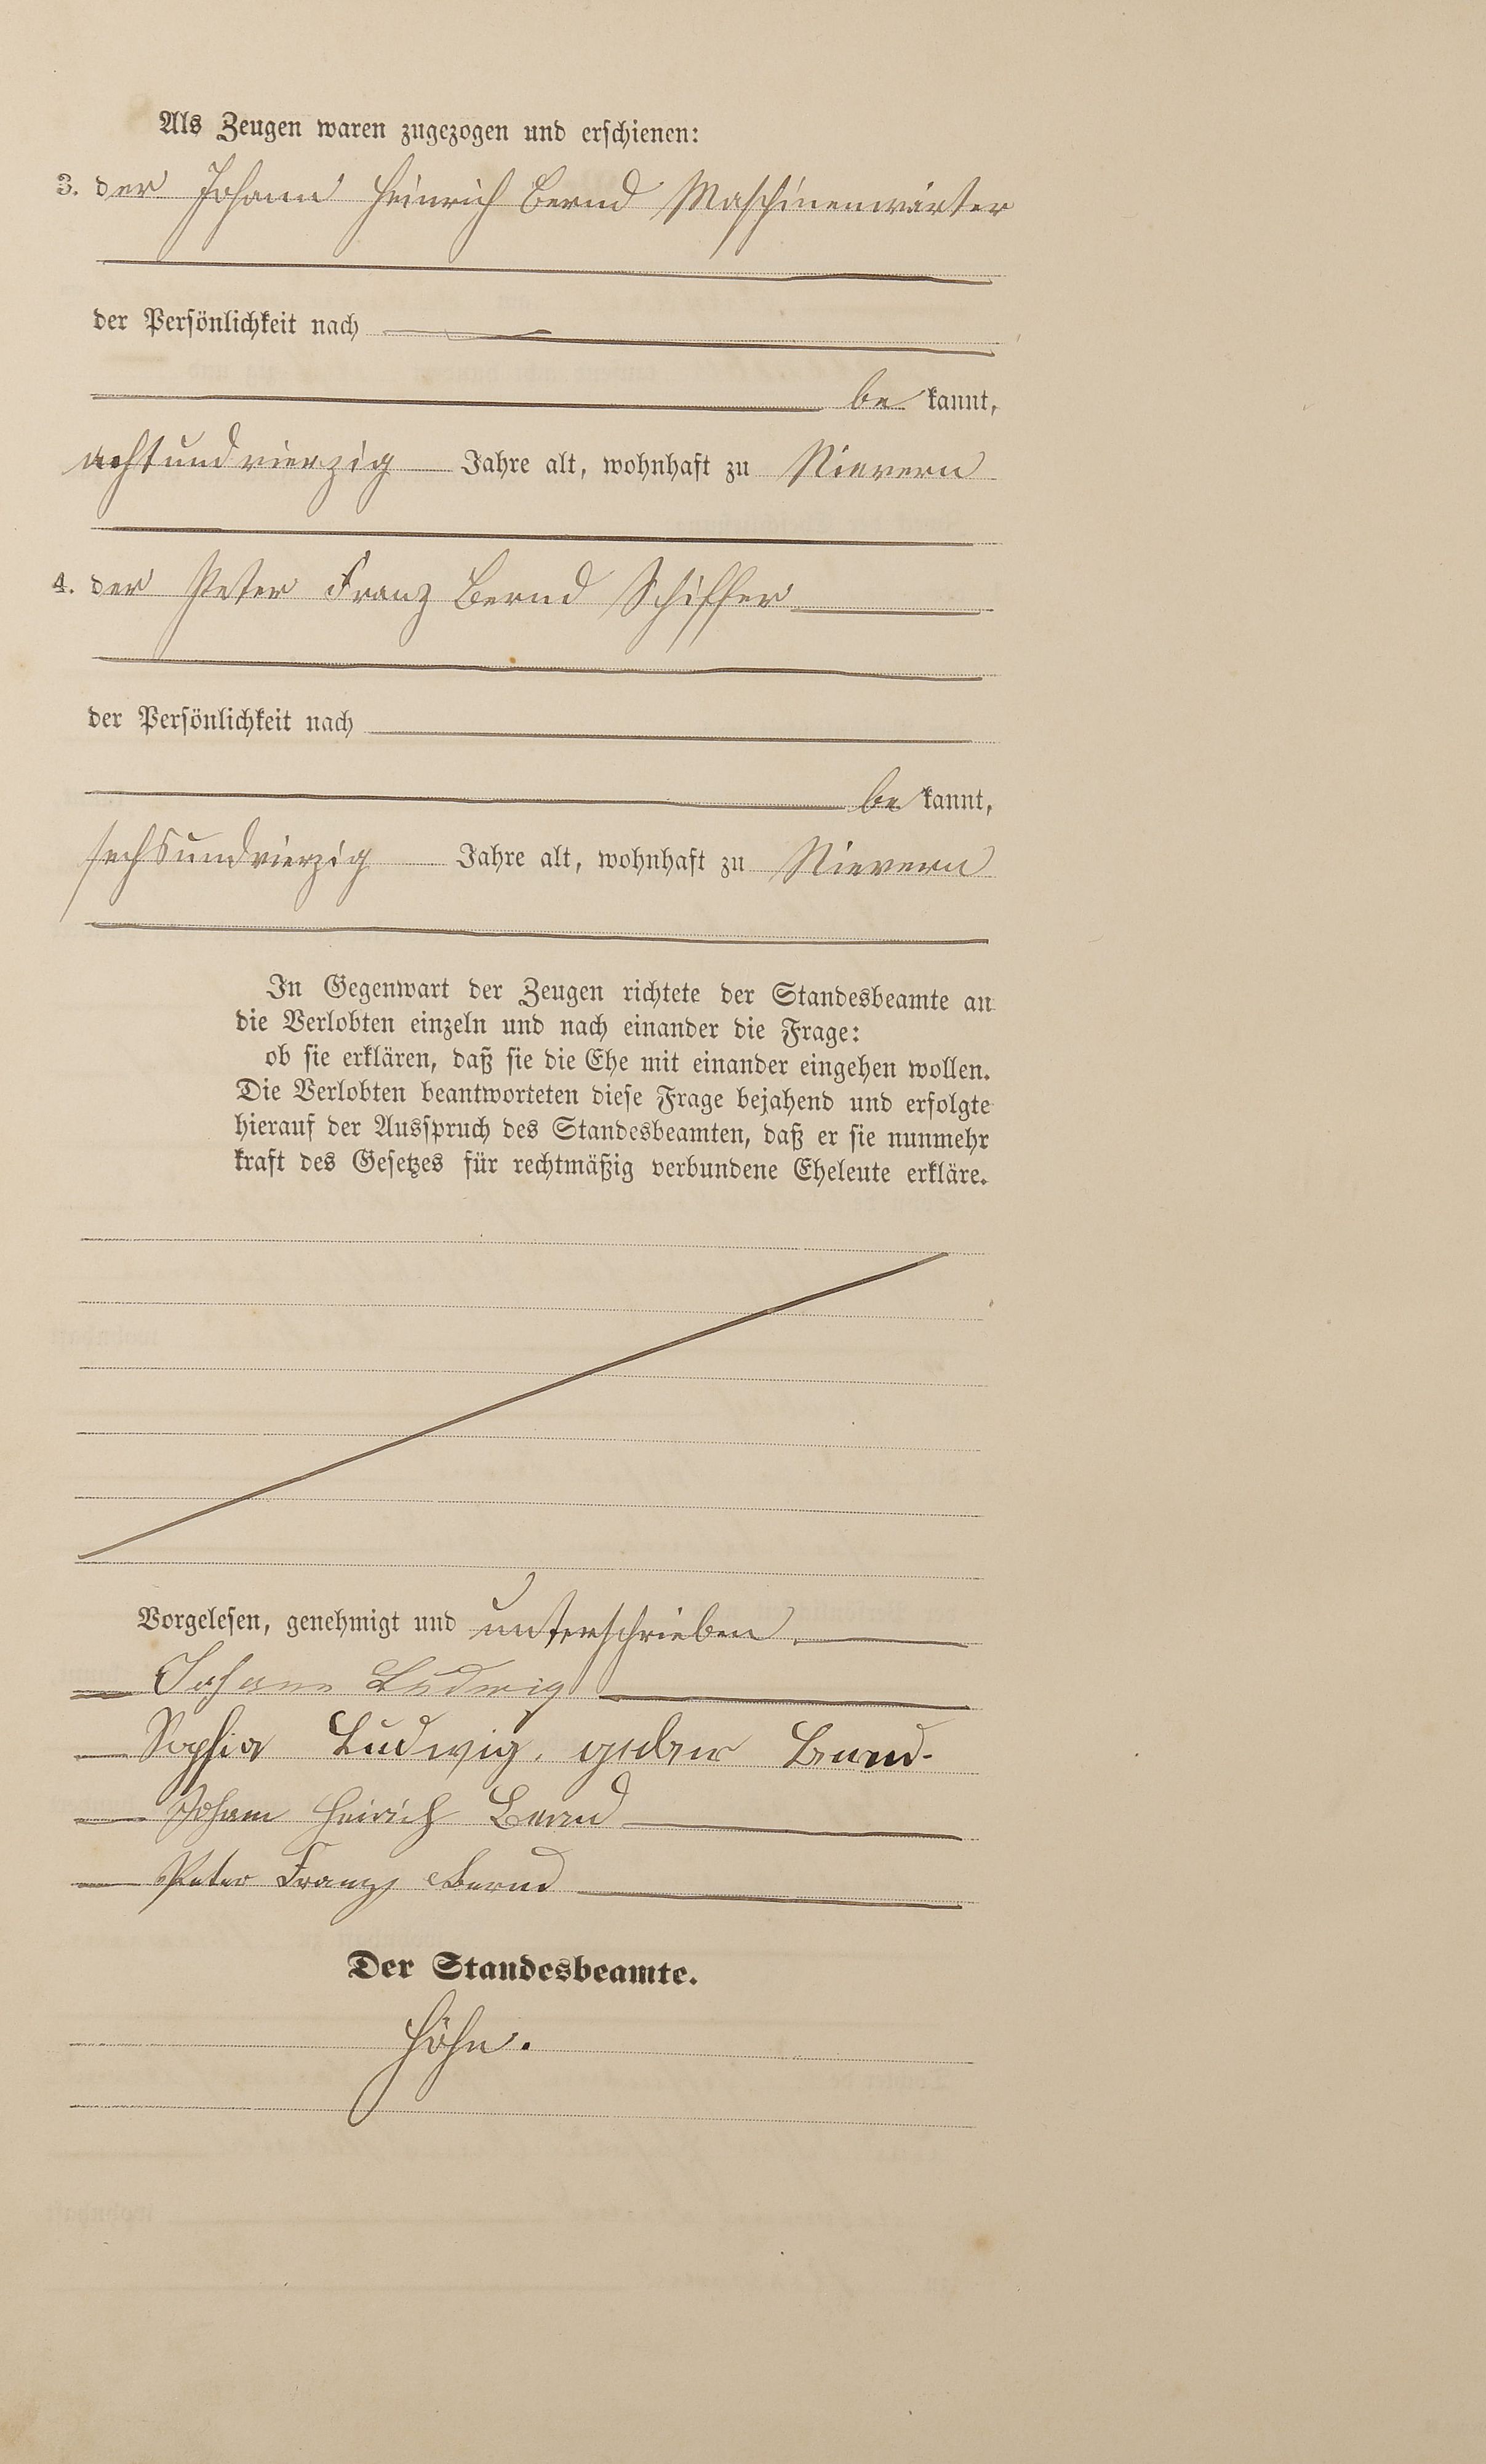 Als Zeugen waren zugezogen und erschienen:
3. der Johann Heinrich Bernd Maschinenwärter
der Persönlichkeit nach
be kannt,
achtundvierzig Jahre alt, wohnhaft zu Nievern
4. der Peter Franz Bernd Schiffer
der Persönlichkeit nach
be kannt,
sechsundvierzig Jahre alt, wohnhaft zu Nievern
In Gegenwart der Zeugen richtete der Standesbeamte an
die Verlobten einzeln und nach einander die Frage:
ob sie erklären, daß sie die Ehe mit einander eingehen wollen.
Die Verlobten beantworteten diese Frage bejahend und erfolgte
hierauf der Ausspruch des Standesbeamten, daß er sie nunmehr
kraft des Gesetzes für rechtmäßig verbundene Eheleute erkläre.
Vorgelesen, genehmigt und unterschrieben.
Johann Ludwig
Sophia Ludwig, geborn Bernd.
Johann Heinrich Bernd
Peter Franz Bernd
Der Standesbeamte.
Höhn.